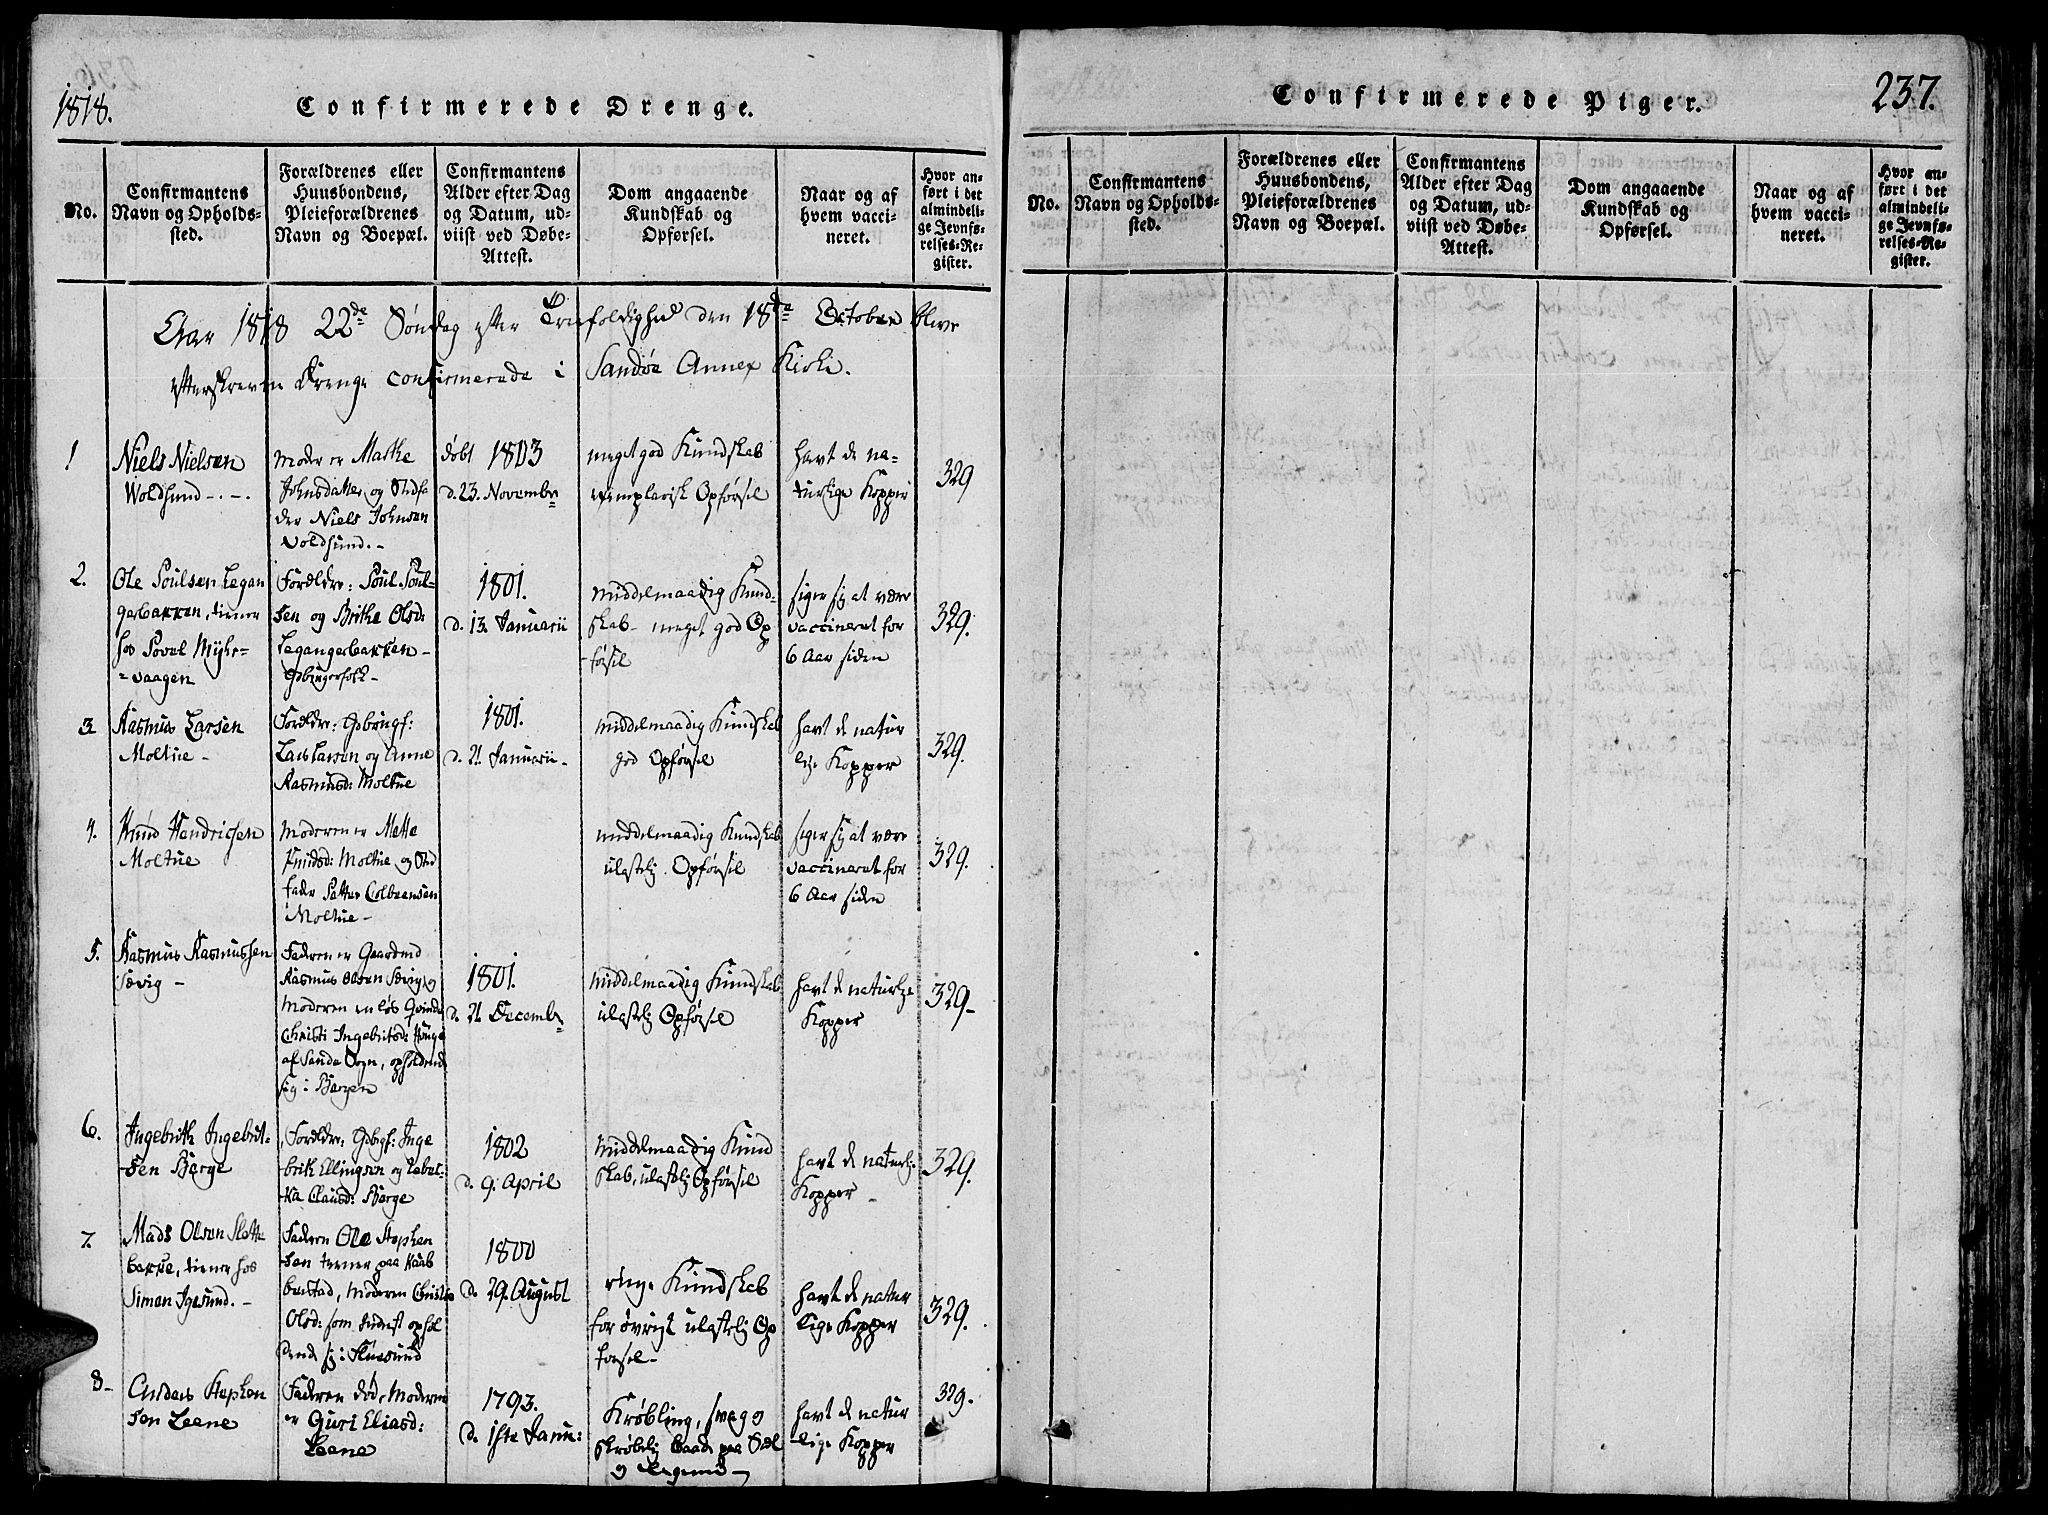 1818.
Confirmerede Drenge.
No.
Confirmantens
Navn og Opholds-
sted.
Forældrenes eller
Huusbondens,
Pleieforældrenes
Navn og Boepæl.
Confirmantens
Alder efter Dag
og Datum, ud-
viist ved Døbe-
Attest.
Dom angaaende
Kundskab og
Opførsel.
Naar og af
hvem vacci-
neret.
Hvor an-
ført i det
almindeli-
ge Jevnfø-
relses-Re-
gister.
Aar 1818 22de Søndag efter Trinefoldighed den 18de October bleve
efterskrevne Drenge confirmerede i Sandøe Annex Kirke.
1
Niels Nielsen
Woldsund -.-.
Moder er Marthe
Johnsdatter og Stedfa
der Niels Johnsen
Voldsund.-
døbt 1803
d. 23. Novembr
meget god Kundskab
exemplarisk Opførsel
havt de na-
turlige Kopper
329
2.
Ole Poulsen Legan
gerbakken, tiener
hos Povel Myhr-
=vaagen
Forældre: Poul Poul-
sen og Brithe Olsd:
Legangerbakken -
Gbrugerfolk-
1801.
d. 13. Januarii
middelmaadig Kund-
skab- meget god Op
-førsel
siger sig at være
vaccineret for
6 Aar siden
329.
3
Rasmus Larsen
Moltue -
Forældre: Gebrugf:
Lars Larsen og Anne
Rasmusd: Moltue
1801.
d. 21. Januarii -
middelmaadig Kundskab
god Opførsel
havt de natur
lige Kopper
329.
4.
Knud Hendricsen
Moltue
Moderen er Mette
Knudsd: Moltue og Sted
fader Petter Colbeensen
Moltue -
middelmaadig Kundskab
ulastelig Opførsel
siger sig at være
vaccineret for
6 Aar siden
329.
5.
Rasmus Rasmussen
Sævig -
Faderen er Gaardmd
Rasmus Olsen Sævig og
Moderen en løs Qvinde
Christi Ingebritsd:
af Sande Sogn, opholdende
sig i Bergen
1801.
d. 21. Decembr
middelmaadig Kundskab
ulastelig Opførsel
havt de naturlige
Kopper
329-
6.
Ingebrith Ingebrit-
sen Berge
Forældre: Gebrgf: Inge
brith Ellingsen og
Clausd: Berge
1802
d. 9. April
middelmaadig Kund
skab, ulastelig Opførsel
havt de naturlige
Kopper -
329.
7.
Mads Olsen Slette
bakke, tiener hos
Simen Igesund. -
Faderen Ole Stephen
sen tiener paa
Moderen
Olsd: som sidst ophol
dende sig i
1800
d. 29. August
ringe Kundskab
for øvrigt ulastelig Op
førsel-
havt de natur
lige Kopper
329.
8-
Anders Stephen
sen Leene
Faderen død, Moderen
er Guri Eliasd:
Leene
1793.
d. 1ste Janu:
Krøbling, svag og
skrøbelig baade paa Siæl
og Legeme -
havt de natur
-lige Kopper
329.
Confirmerede Piger.
237.
No.
Confirmantens
Navn og Opholds-
sted.
Forældrenes eller
Huusbondens,
Pleieforældrenes
Navn og Boepæl.
Confirmantens
Alder efter Dag
og Datum, ud-
viist ved Døbe-
Attest.
Dom angaaende
Kundskab og
Opførsel.
Naar og af
hvem vacci-
neret.
Hvor an-
ført i det
almindeli-
ge Jevnfø-
relses-Re-
gister.